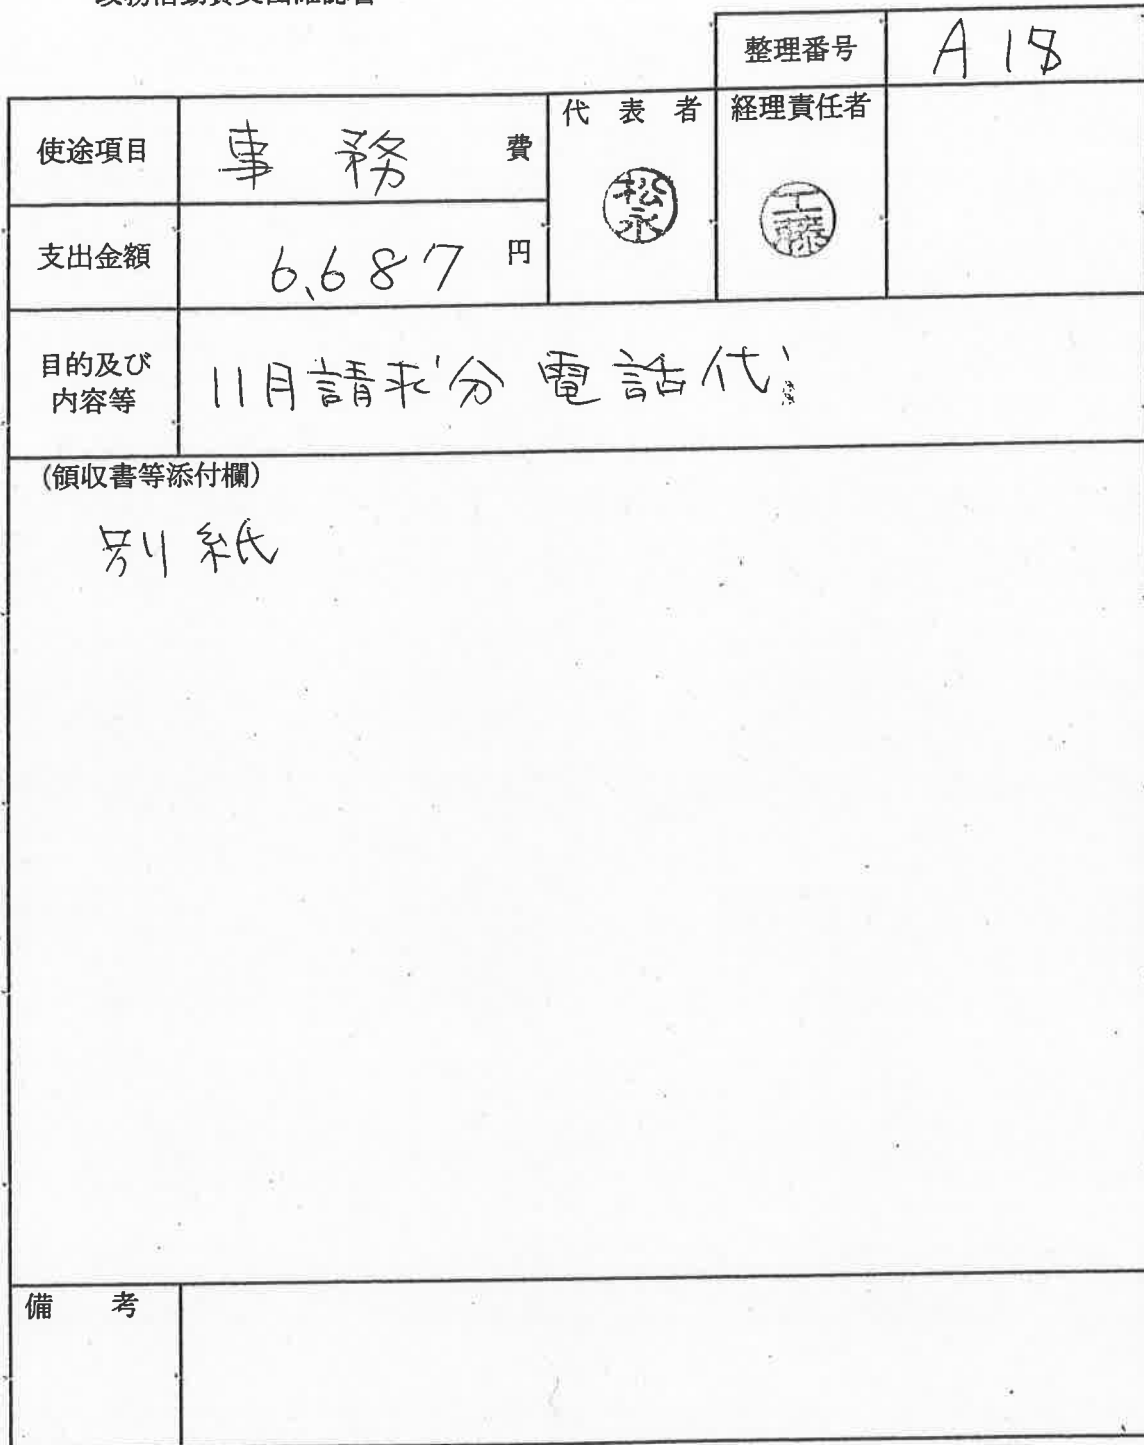 整理番号 A18
使途項目 事務費
代表者 経理責任者
松永
工藤
支出金額 6,687円
目的及び
内容等
11月請求分 電話代
(領収書等添付欄)
別紙
備考